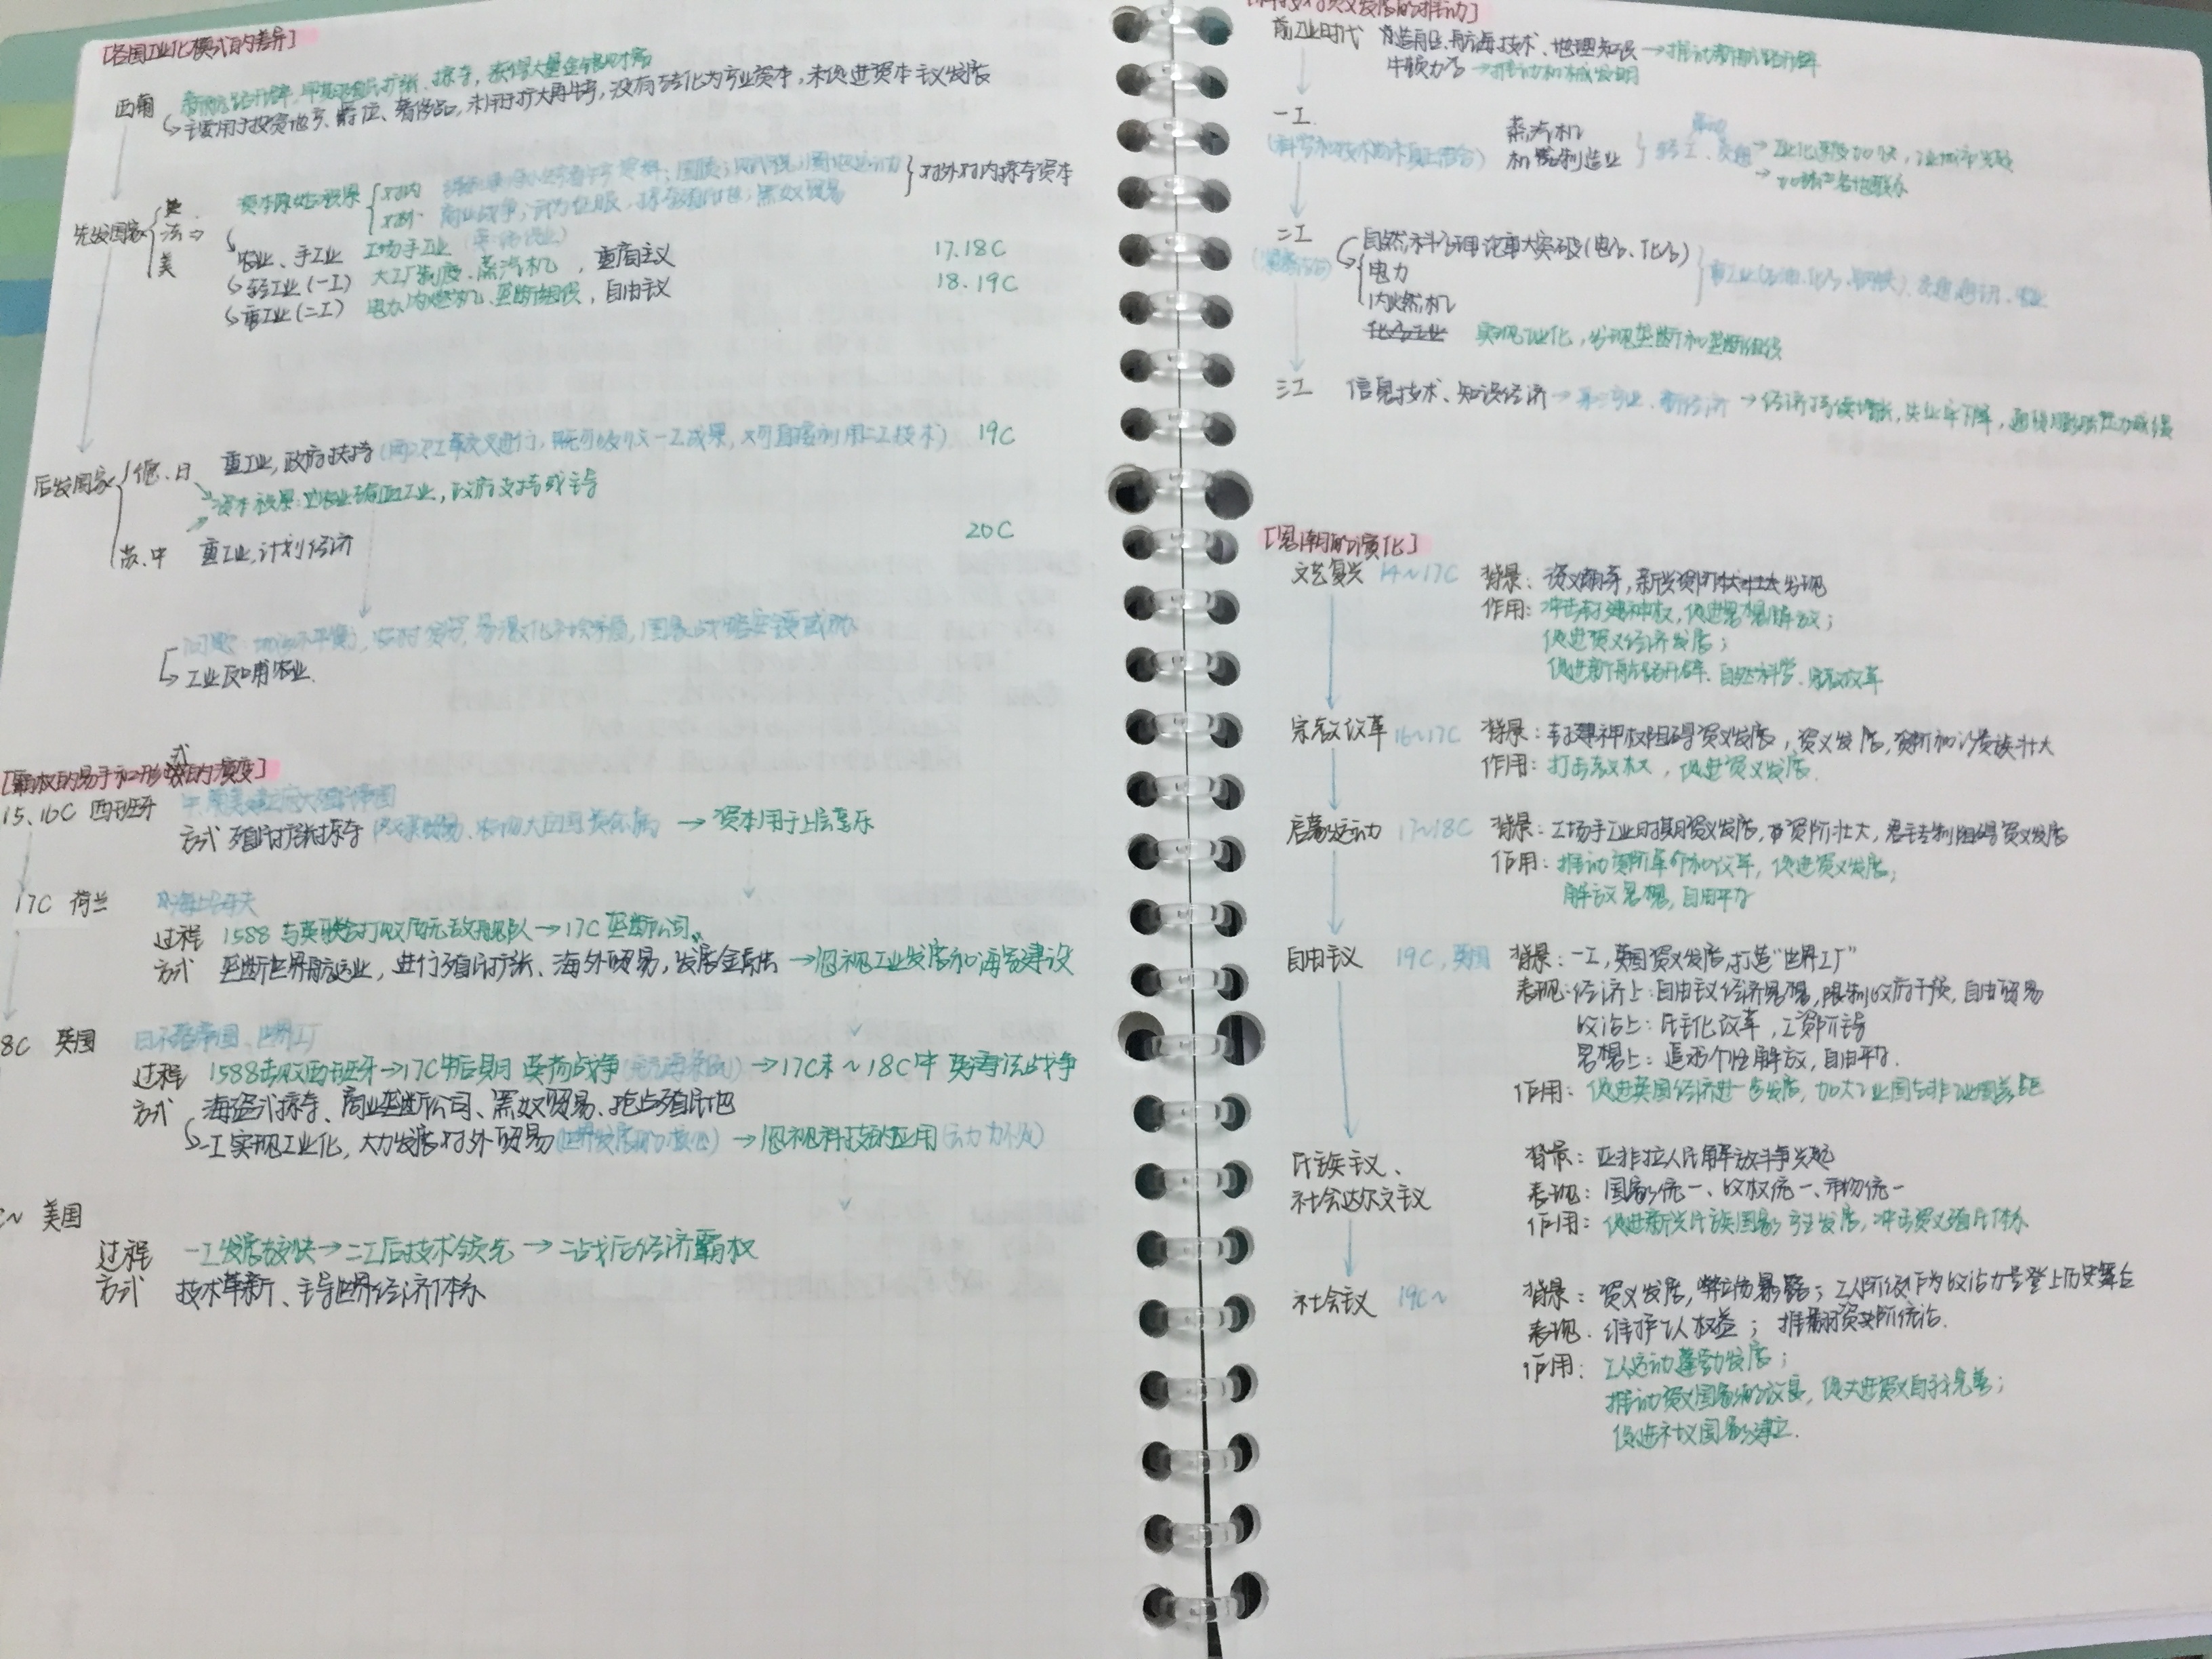 [各国工业化模式的差异]
西葡 新航路开辟,早期殖民扩张、掠夺,获得大量金银财富
↳主要用于投资地产、爵位、奢侈品,未用于扩大再生产,没有转化为产业资本,未促进资本主义发展
先发国家 英 法 美 ⇒
资本原始积累 对内 国债;圈地运动
对外 商业战争,武力征服,掠夺殖民地,黑奴贸易 } 对外对内掠夺资本
↳农业、手工业 工场手工业 17.18C
↳轻工业(一工) 大工厂制度、蒸汽机,重商主义 18.19C
↳重工业(二工) 电力内燃机、垄断组织,自由主义
后发国家 德.日 重工业,政府扶持(两次工革交叉进行,既可吸收一工成果,又可直接利用二工技术) 19C
资本积累:以农业辅助工业,政府支持或主导
苏.中 重工业,计划经济 20C
↳工业反哺农业.
[霸权的易手和形式的演变]
15、16C 西班牙 中.南美建立庞大殖民帝国
方式 殖民扩张掠夺 →资本用于上层享乐
17C 荷兰 海上马车夫
过程 1588与英联合打败西无敌舰队→17C垄断公司
方式 垄断世界航运业,进行殖民扩张、海外贸易,发展金融→忽视工业发展和海军建设
8C 英国 日不落帝国、世界工厂
过程 1588击败西班牙→17C中后期 英荷战争→17C末~18C中 英海法战争
方式 海盗式掠夺、商业垄断公司、黑奴贸易、抢占殖民地
↳一工实现工业化,大力发展对外贸易→忽视科技的应用(动力不足)
~ 美国
过程 一工发展较快→二工后技术领先→二战后经济霸权
方式 技术革新、主导世界经济体系
前工业时代 航海技术、地理知识→推动新航路开辟
牛顿力学→推动机械发明
一工
蒸汽机
机器制造业 轻工、交通 →工业化速度加快,工业城市兴起
→加强世界各地联系
二工
自然科学理论重大突破(电学、化学)
电力
内燃机
重工业(石油、化学、钢铁)、交通通讯、农业
实现工业化,出现垄断和垄断组织
三工 信息技术、知识经济→新产业、新经济→经济持续增长,失业率下降,通货膨胀压力减缓
[思潮的演化]
文艺复兴 14~17C 背景:资义萌芽,新兴资阶状壮大出现
作用:冲击封建神权,促进思想解放;
促进资义经济发展;
促进新航路开辟、自然科学、宗教改革
宗教改革 16~17C 背景:封建神权阻碍资义发展,资义发展,资阶和沙贵族壮大
作用:打击教权,促进资义发展.
启蒙运动 17~18C 背景:工场手工业时期资义发展,市资阶壮大,君主专制阻碍资义发展
作用:推动资阶革命和改革,促进资义发展;
解放思想,自由平等
自由主义 19C,英国 背景:一工,英国资义发展,打造“世界工厂”
表现:经济上:自由主义经济思想,限制政府干预,自由贸易
政治上:民主化改革,工资阶主导
思想上:追求个性解放,自由平等.
作用:促进英国经济进一步发展,加大工业国与非工业国差距
民族主义、
社会达尔文主义
背景:亚非拉人民解放斗争兴起
表现:国家统一、政权统一、市场统一
作用:促进新兴民族国家产生发展,冲击资义殖民体系
社会主义 19C~ 背景:资义发展,弊端暴露;工人阶级作为政治力量登上历史舞台
表现.维护工人权益;推翻资阶统治.
作用:工人运动蓬勃发展;
推动资义国家的改良,促进资义自我完善;
促进社义国家建立.